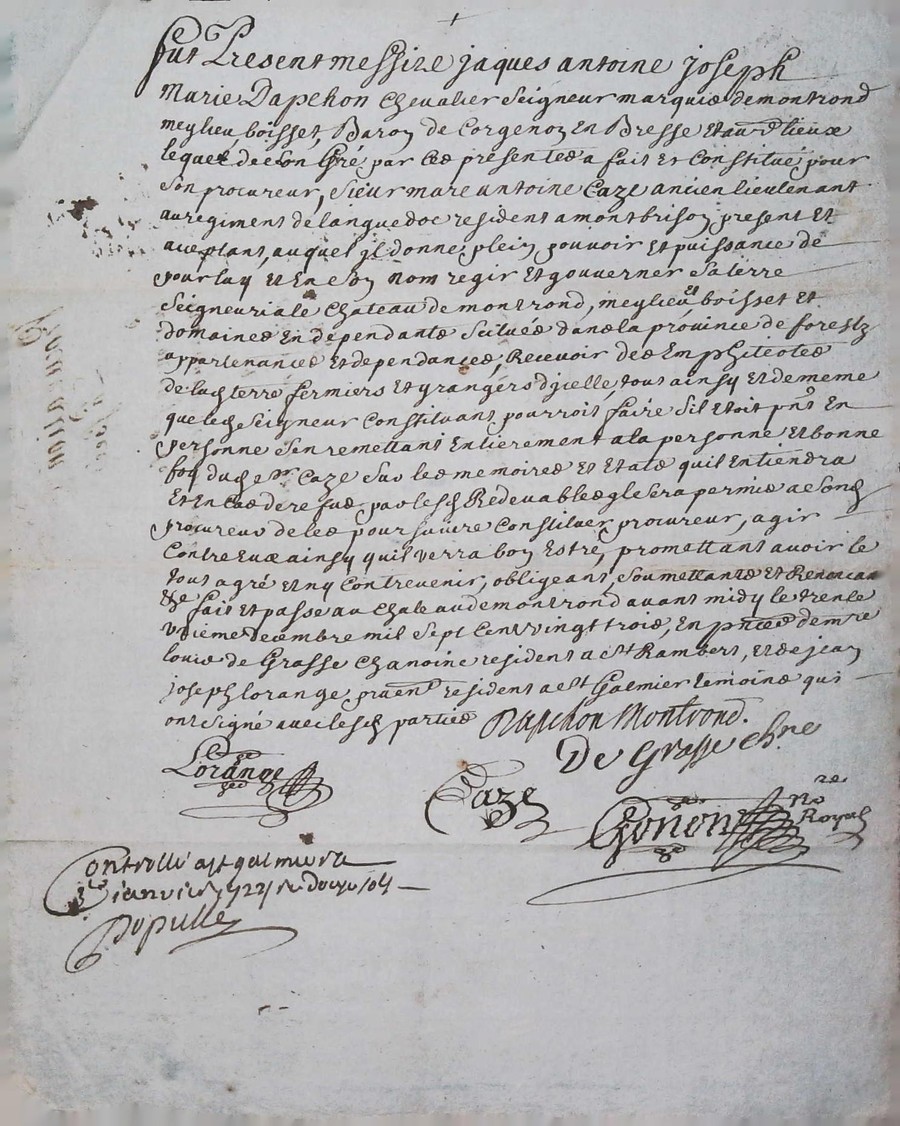 fut Present messire jaques antoine joseph
Marie Dapchon chevalier seigneur marquis demontrond
meylieu, boisset, Baron de Corgenon En Bresse Et aues lieux
lequel deson gré par ces presentes a fait Et Constitué pour
son procureur, sieur marc antoine Caze ancien lieutenant
auregiment delanguedoc resident a montbrison present Et
aceptant, auquel jl donne plein pouvoir et puissance de
pour luy Et En son nom regir Et gouverner saterre
Seigneuriale Chateau de montrond, meylieu, et boisset Et
domaines En dependants scitués dans la province de forestz
appartenances Et dependances, Recevoir des Emphiteotes
de lad terre fermiers Et grangers d'jcelle, tout ainsy Et de meme
que led seigneur Constituant pourroit faire sil Etoit pnt En
personne s'en remettant Entierement a la personne Et bonne
foy dud sr Caze sur les memoires et Etats quil En tiendra
Et En Cas de refus par lesd Redevables jl sera permis a sond
procureur de les poursuivre Constituer procureur, agir
Contre Eux ainsy quil verra bon Estre, promettant avoir le
tout agré et ny contrevenir, obligeant, soumettants et Renoncan
&c fait et passé au chateau de montrond avant midy le trente
Unieme decembre mil sept Cent vingt trois, En pnces demre
louis de Grasse chanoine resident a st Rambert, et de jean
joseph lorange resident a st Galmier temoins qui
ont signé avec lesd parties Dapchon Montrond.
De Grasse chne
Lorange
Caze
Gonon
Nre Royal
Controllé a st galmier le
janvier 1724 Re douze sols
Populle